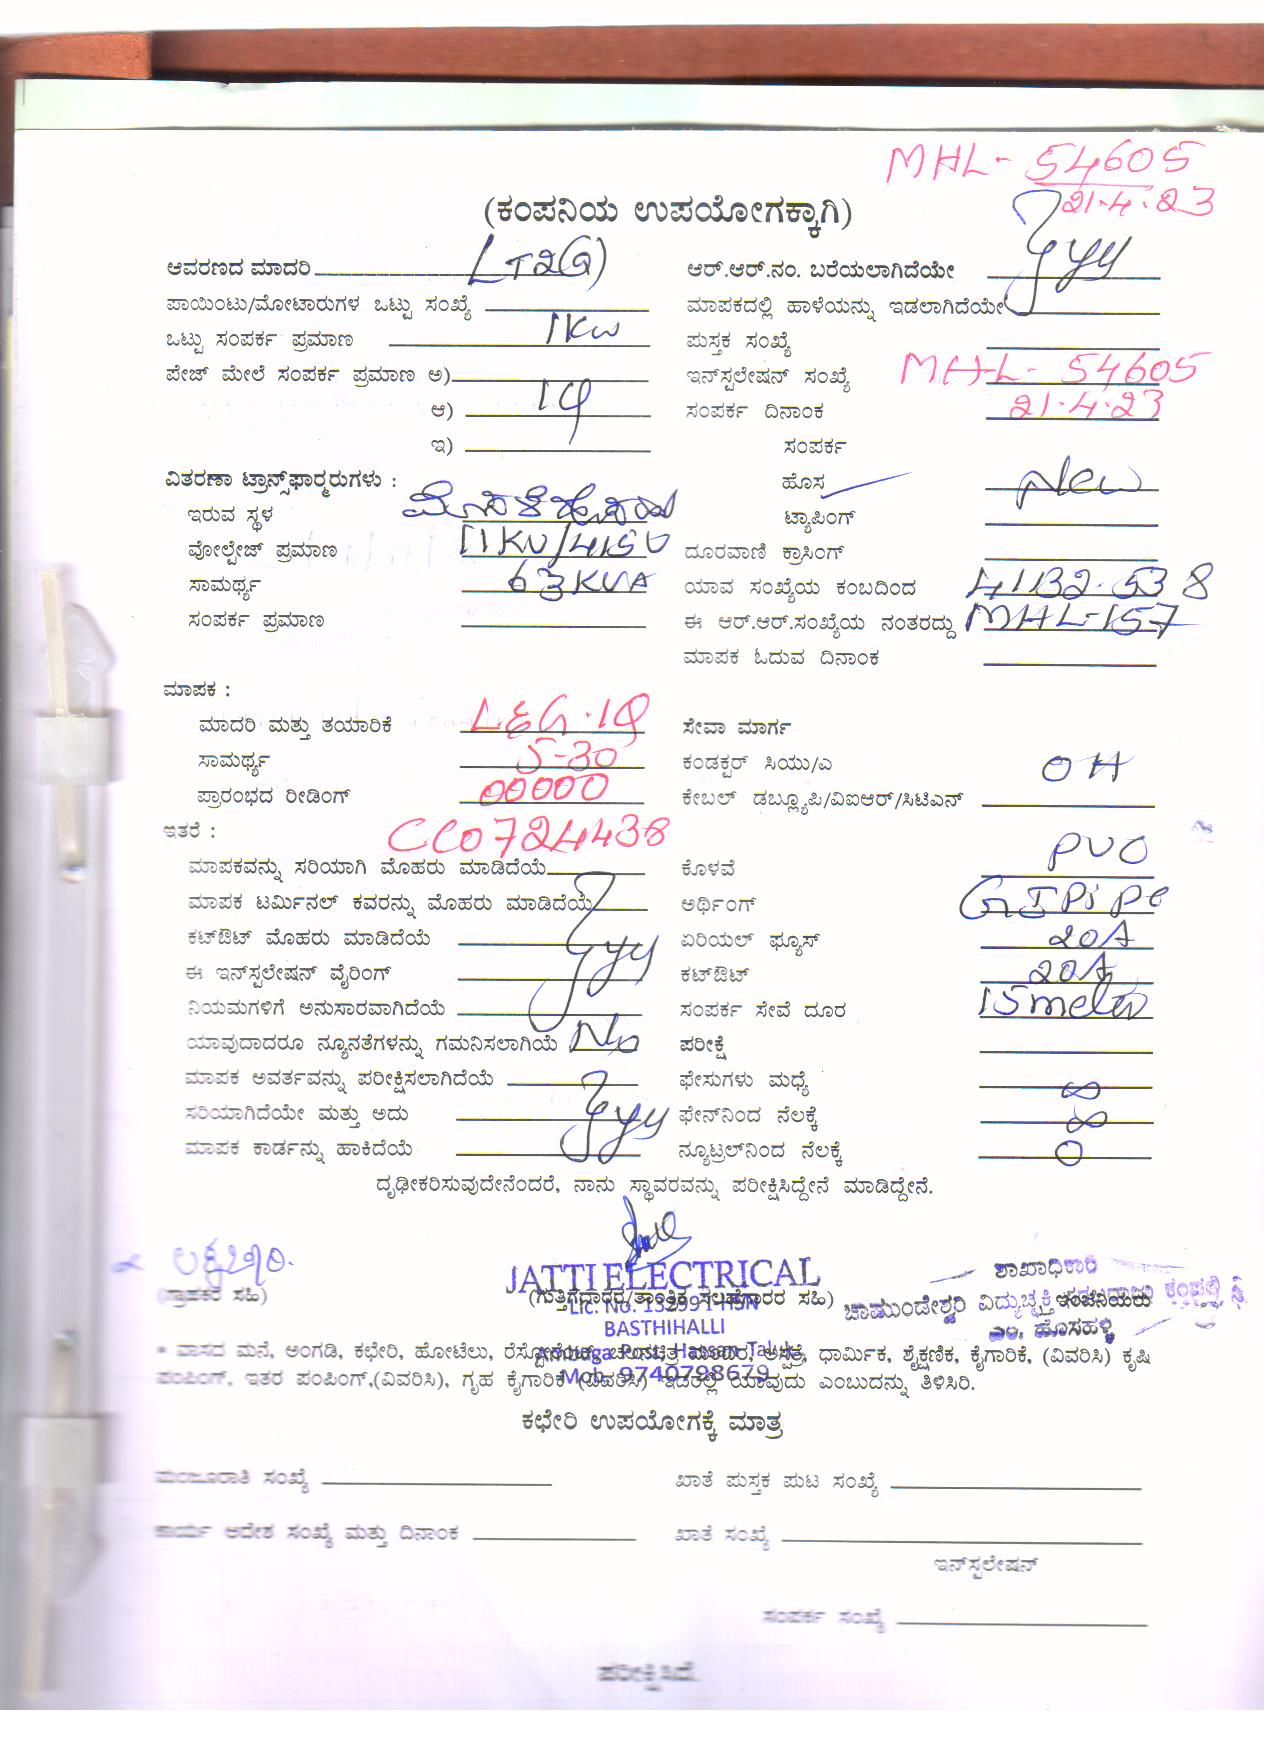 MHL- 54605
21.4.23
(ಕಂಪನಿಯ ಉಪಯೋಗಕ್ಕಾಗಿ)
ಆವರಣದ ಮಾದರಿ LT2(a) ಆರ್.ಆರ್.ನಂ. ಬರೆಯಲಾಗಿದೆಯೇ
ಪಾಯಿಂಟು/ಮೋಟಾರುಗಳ ಒಟ್ಟು ಸಂಖ್ಯೆ ಮಾಪಕದಲ್ಲಿ ಹಾಳೆಯನ್ನು ಇಡಲಾಗಿದೆಯೇ
ಒಟ್ಟು ಸಂಪರ್ಕ ಪ್ರಮಾಣ 1Kw ಪುಸ್ತಕ ಸಂಖ್ಯೆ
ಪೇಜ್ ಮೇಲೆ ಸಂಪರ್ಕ ಪ್ರಮಾಣ ಅ) ಇನ್‌ಸ್ಟಲೇಷನ್ ಸಂಖ್ಯೆ MHL- 54605
ಆ) 1φ ಸಂಪರ್ಕ ದಿನಾಂಕ 21.4.23
ಇ) ಸಂಪರ್ಕ
ವಿತರಣಾ ಟ್ರಾನ್ಸ್‌ಫಾರ್ಮರುಗಳು : ಹೊಸ New
ಇರುವ ಸ್ಥಳ ಟ್ಯಾಪಿಂಗ್
ವೋಲ್ಟೇಜ್ ಪ್ರಮಾಣ 11KV/415V ದೂರವಾಣಿ ಕ್ರಾಸಿಂಗ್
ಸಾಮರ್ಥ್ಯ 63KVA ಯಾವ ಸಂಖ್ಯೆಯ ಕಂಬದಿಂದ
ಸಂಪರ್ಕ ಪ್ರಮಾಣ ಈ ಆರ್.ಆರ್.ಸಂಖ್ಯೆಯ ನಂತರದ್ದು MHL-157
ಮಾಪಕ ಓದುವ ದಿನಾಂಕ
ಮಾಪಕ :
ಮಾದರಿ ಮತ್ತು ತಯಾರಿಕೆ L&G.1φ ಸೇವಾ ಮಾರ್ಗ
ಸಾಮರ್ಥ್ಯ 5-30 ಕಂಡಕ್ಟರ್ ಸಿಯು/ಎ OH
ಪ್ರಾರಂಭದ ರೀಡಿಂಗ್ 00000 ಕೇಬಲ್ ಡಬ್ಲ್ಯೂಪಿ/ವಿಐಆರ್/ಸಿಟಿಎಸ್
ಇತರೆ : CC0724438
ಮಾಪಕವನ್ನು ಸರಿಯಾಗಿ ಮೊಹರು ಮಾಡಿದೆಯೆ ಕೊಳವೆ PVC
ಮಾಪಕ ಟರ್ಮಿನಲ್ ಕವರನ್ನು ಮೊಹರು ಮಾಡಿದೆಯೆ ಅರ್ಥಿಂಗ್ GI Pipe
ಕಟ್‌ಔಟ್ ಮೊಹರು ಮಾಡಿದೆಯೆ ಏರಿಯಲ್ ಫ್ಯೂಸ್ 20A
ಈ ಇನ್‌ಸ್ಟಲೇಷನ್ ವೈರಿಂಗ್ ಕಟ್‌ಔಟ್ 20A
ನಿಯಮಗಳಿಗೆ ಅನುಸಾರವಾಗಿದೆಯೆ ಸಂಪರ್ಕ ಸೇವೆ ದೂರ 15meter
ಯಾವುದಾದರೂ ನ್ಯೂನತೆಗಳನ್ನು ಗಮನಿಸಲಾಗಿಯೆ No ಪರೀಕ್ಷೆ
ಮಾಪಕ ಅವರ್ತವನ್ನು ಪರೀಕ್ಷಿಸಲಾಗಿದೆಯೆ ಫೇಸುಗಳು ಮಧ್ಯೆ ∞
ಸರಿಯಾಗಿದೆಯೇ ಮತ್ತು ಅದು ಫೇಸ್‌ನಿಂದ ನೆಲಕ್ಕೆ ∞
ಮಾಪಕ ಕಾರ್ಡನ್ನು ಹಾಕಿದೆಯೆ ನ್ಯೂಟ್ರಲ್‌ನಿಂದ ನೆಲಕ್ಕೆ 0
ದೃಢೀಕರಿಸುವುದೇನೆಂದರೆ, ನಾನು ಸ್ಥಾವರವನ್ನು ಪರೀಕ್ಷಿಸಿದ್ದೇನೆ ಮಾಡಿದ್ದೇನೆ.
JATTI ELECTRICAL ಶಾಖಾಧಿಕಾರಿ
(ಗ್ರಾಹಕರ ಸಹಿ) (ಗುತ್ತಿಗೆದಾರರ/ತಾಂತ್ರಿಕ ಸಲಹೆಗಾರರ ಸಹಿ) ಚಾಮುಂಡೇಶ್ವರಿ ವಿದ್ಯುಚ್ಛಕ್ತಿ
BASTHIHALLI ಎಂ. ಹೊಸಹಳ್ಳಿ
* ವಾಸದ ಮನೆ, ಅಂಗಡಿ, ಕಛೇರಿ, ಹೋಟೆಲು, ಧಾರ್ಮಿಕ, ಶೈಕ್ಷಣಿಕ, ಕೈಗಾರಿಕೆ, (ವಿವರಿಸಿ) ಕೃಷಿ
ಪಂಪಿಂಗ್, ಇತರ ಪಂಪಿಂಗ್,(ವಿವರಿಸಿ), ಗೃಹ ಕೈಗಾರಿಕೆ (ವಿವರಿಸಿ) ಇದರಲ್ಲಿ ಯಾವುದು ಎಂಬುದನ್ನು ತಿಳಿಸಿರಿ.
Mob. 9740798679
ಕಛೇರಿ ಉಪಯೋಗಕ್ಕೆ ಮಾತ್ರ
ಮಂಜೂರಾತಿ ಸಂಖ್ಯೆ ಖಾತೆ ಪುಸ್ತಕ ಪುಟ ಸಂಖ್ಯೆ
ಕಾರ್ಯ ಆದೇಶ ಸಂಖ್ಯೆ ಮತ್ತು ದಿನಾಂಕ ಖಾತೆ ಸಂಖ್ಯೆ
ಇನ್‌ಸ್ಟಲೇಷನ್
ಸಂಪರ್ಕ ಸಂಖ್ಯೆ
ಪರೀಕ್ಷಿಸಿದೆ.